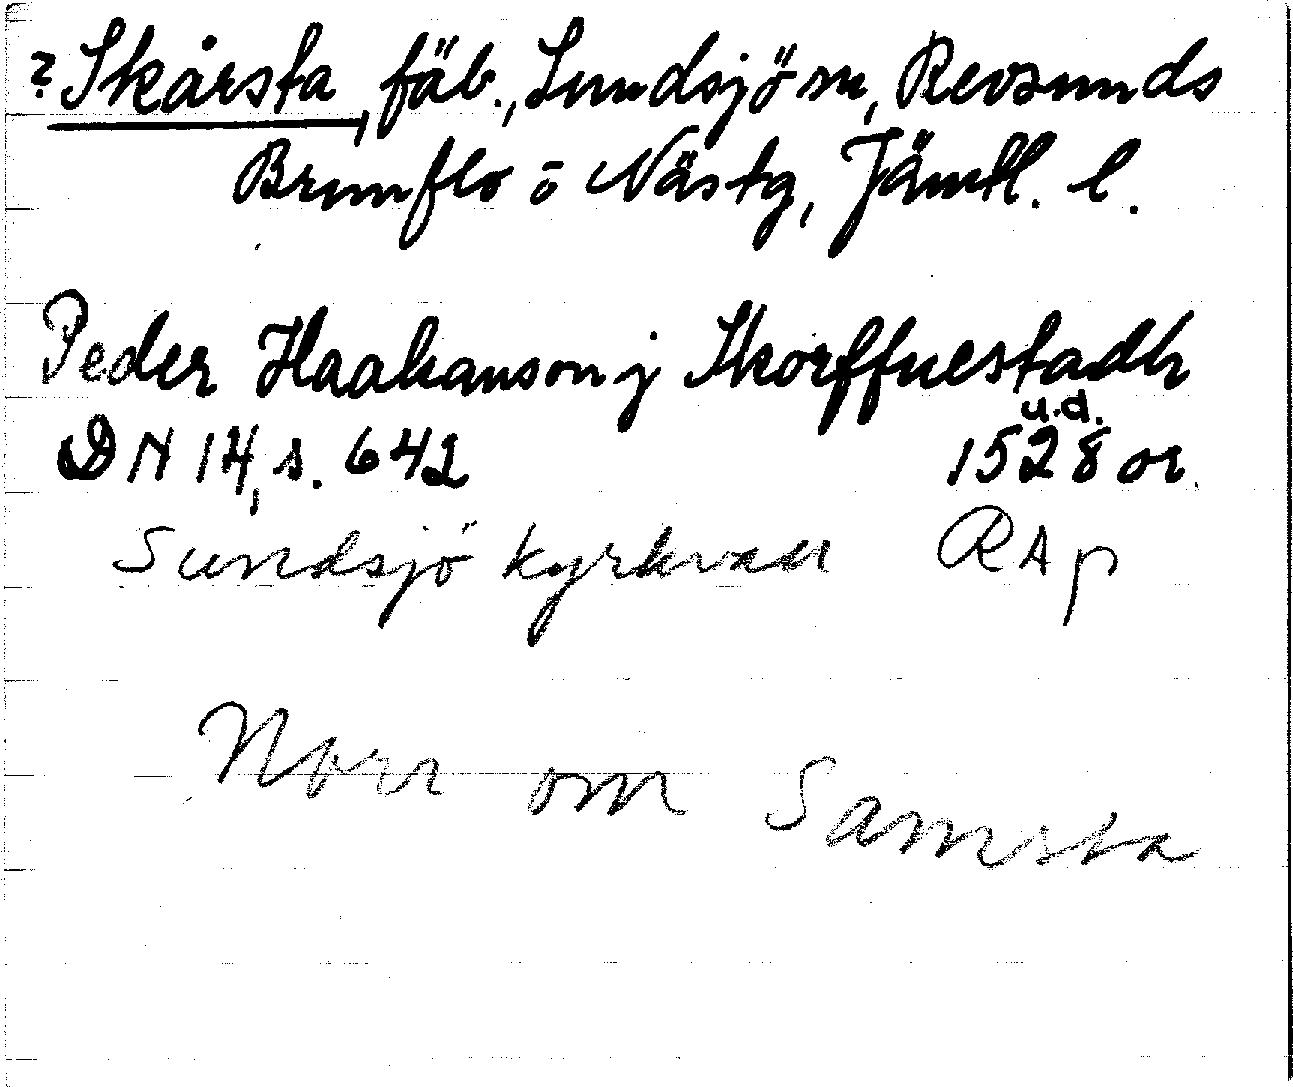 ? Skårsta, fäb., Sundsjö sn, Revsunds
Brunflo o Näs tg, Jämtl. l.
Peder Haakanson j Skorffuestadh
u.d.
DN 14, s. 642 1528 or.
Sundsjö kyrkvall RAp
Norr om Samsta